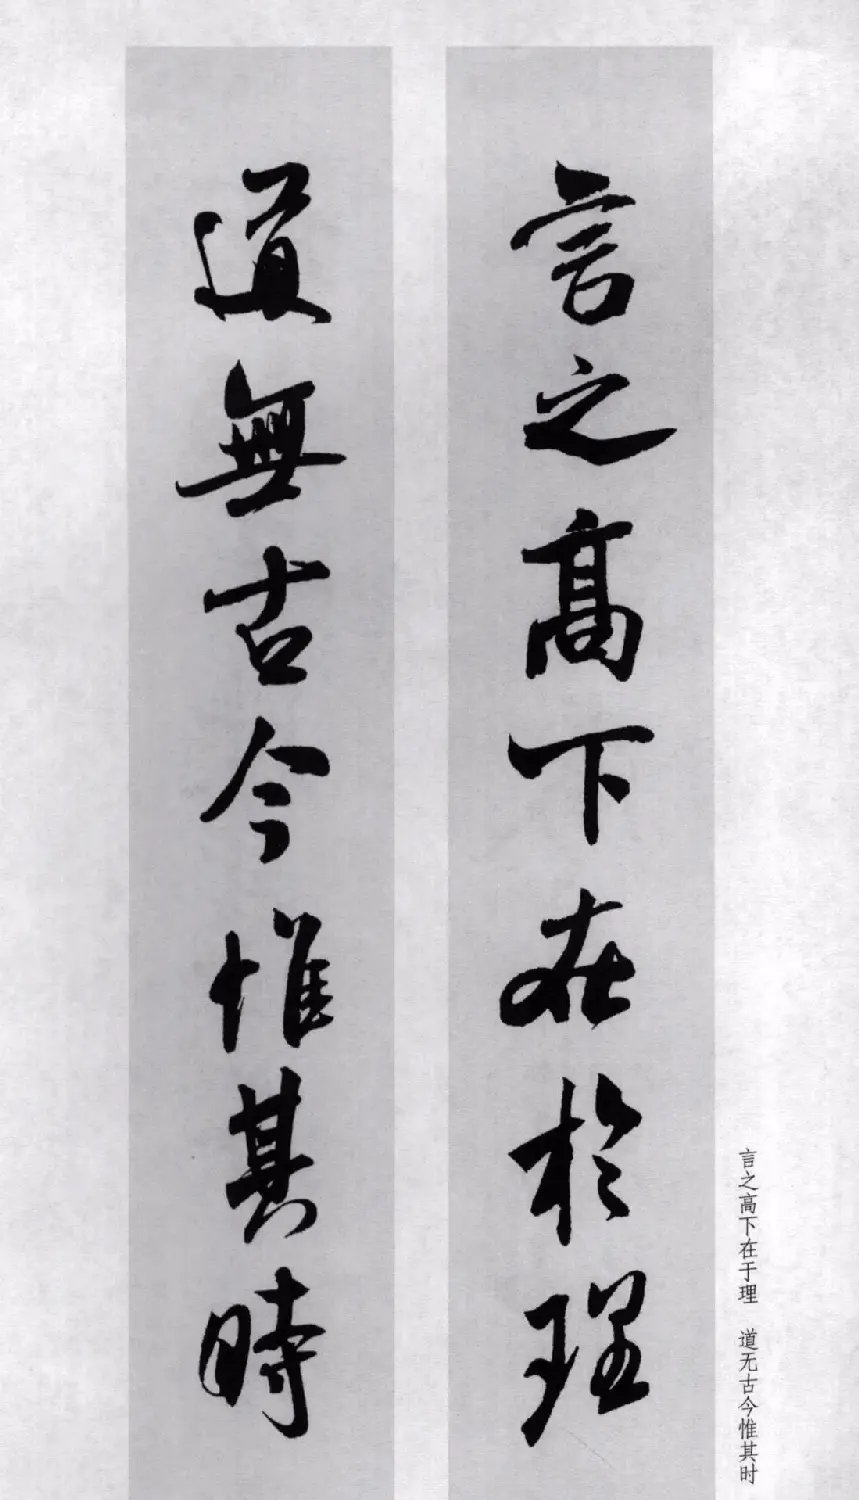 言之高下在於理
道無古今惟其時
言之高下在于理　道无古今惟其时